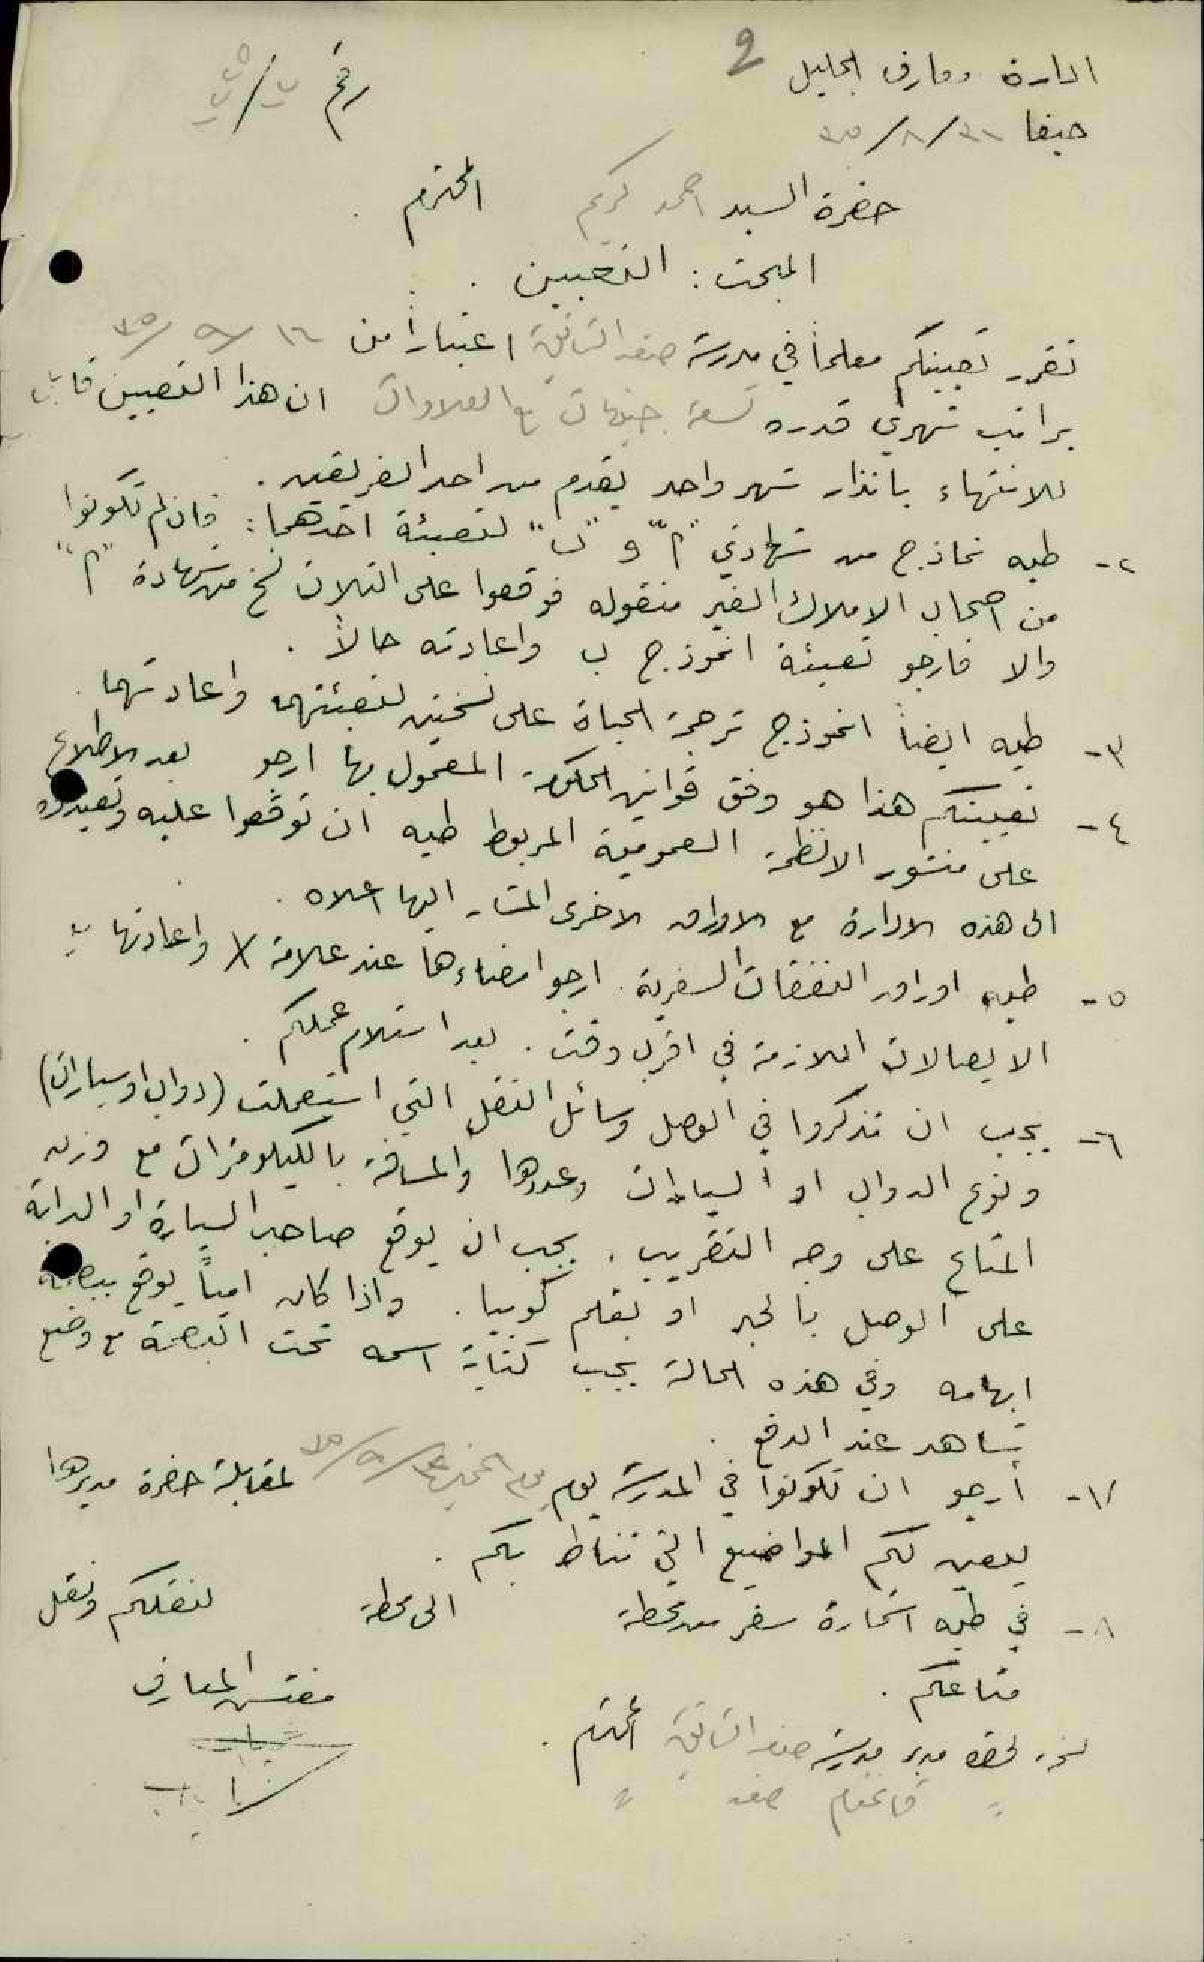 ادارة معارف الجليل 2
حيفا ٣١/٨/٣٥ رقم
حضرة السيد احمد كريم المحترم
المبحث : التعيين .
تقرر تعيينكم معلماً في مدرسة صفد الثانوية اعتباراً من ١٦/٩/٣٥
براتب شهري قدره تسعة جنيهات مع العلاوات ان هذا التعيين قابل
للانتهاء بانذار شهر واحد يقدم من احد الفريقين .
٢- طيه نماذج من شهادتي "أ" و "ب" لتعبئة احدهما : فان لم تكونوا
من اصحاب الاملاك الغير منقوله فوقعوا على الثلاث نسخ من شهادة "أ"
والا فارجو تعبئة انموذج ب واعادته حالاً .
٣- طيه ايضاً انموذج ترجمة الحياة على نسختين لتعبئتهما واعادتهما .
٤- تعيينكم هذا هو وفق قوانين الحكومة المعمول بها ارجو بعد الاطلاع
على منشور الانظمة العمومية المربوط طيه ان توقعوا عليه وتعيدوه
الى هذه الادارة مع الاوراق الاخرى المشار اليها اعلاه .
٥- طيه اوراق النفقات السفرية . ارجو امضاءها عند علامة X واعادتها مع
الايصالات اللازمة في اقرب وقت . بعد استلام عملكم .
٦- يجب ان تذكروا في الوصل وسائل النقل التي استعملت (دواب او سيارات)
ونوع الدواب او السيارات وعددها والمسافة بالكيلومترات مع وزن
المتاع على وجه التقريب . يجب ان يوقع صاحب السيارة او الدابة
على الوصل بالحبر او بقلم كوبيا . واذا كان امياً يوقع ببصمة
ابهامه وفي هذه الحالة يجب كتابة اسمه تحت البصمة مع وضع
شاهد عند الدفع .
٧- أرجو ان تكونوا في المدرسة يوم يوم الخميس /٩/٣٥ لمقابلة حضرة مديرها
ليعين لكم المواضيع التي تناط بكم .
٨- في طيه استمارة سفر من محطة الى محطة لنقلكم ونقل
متاعكم .
مفتش المعارف
نسخة لحضرة مدير مدرسة صفد الثانوية المحترم .
" قائمقام صفد "